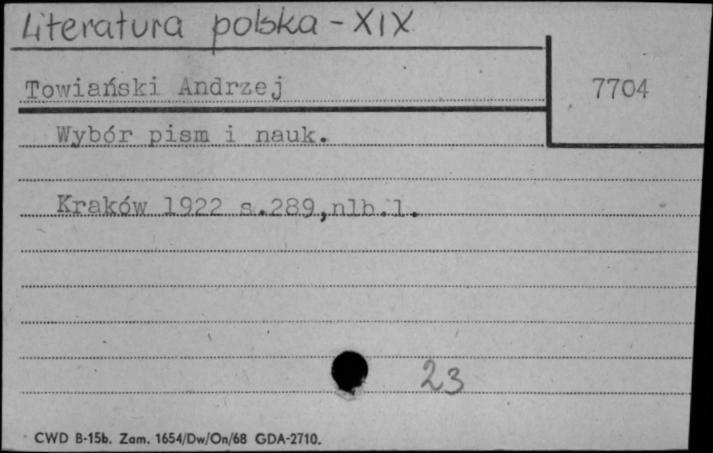 Literatura polska - XIX
Towiański Andrzej
7704
Wybór pism i nauk.
Kraków 1922 s.289,nlb.1.
23
CWD B-15b. Zam. 1654/Dw/On/68 GDA-2710.